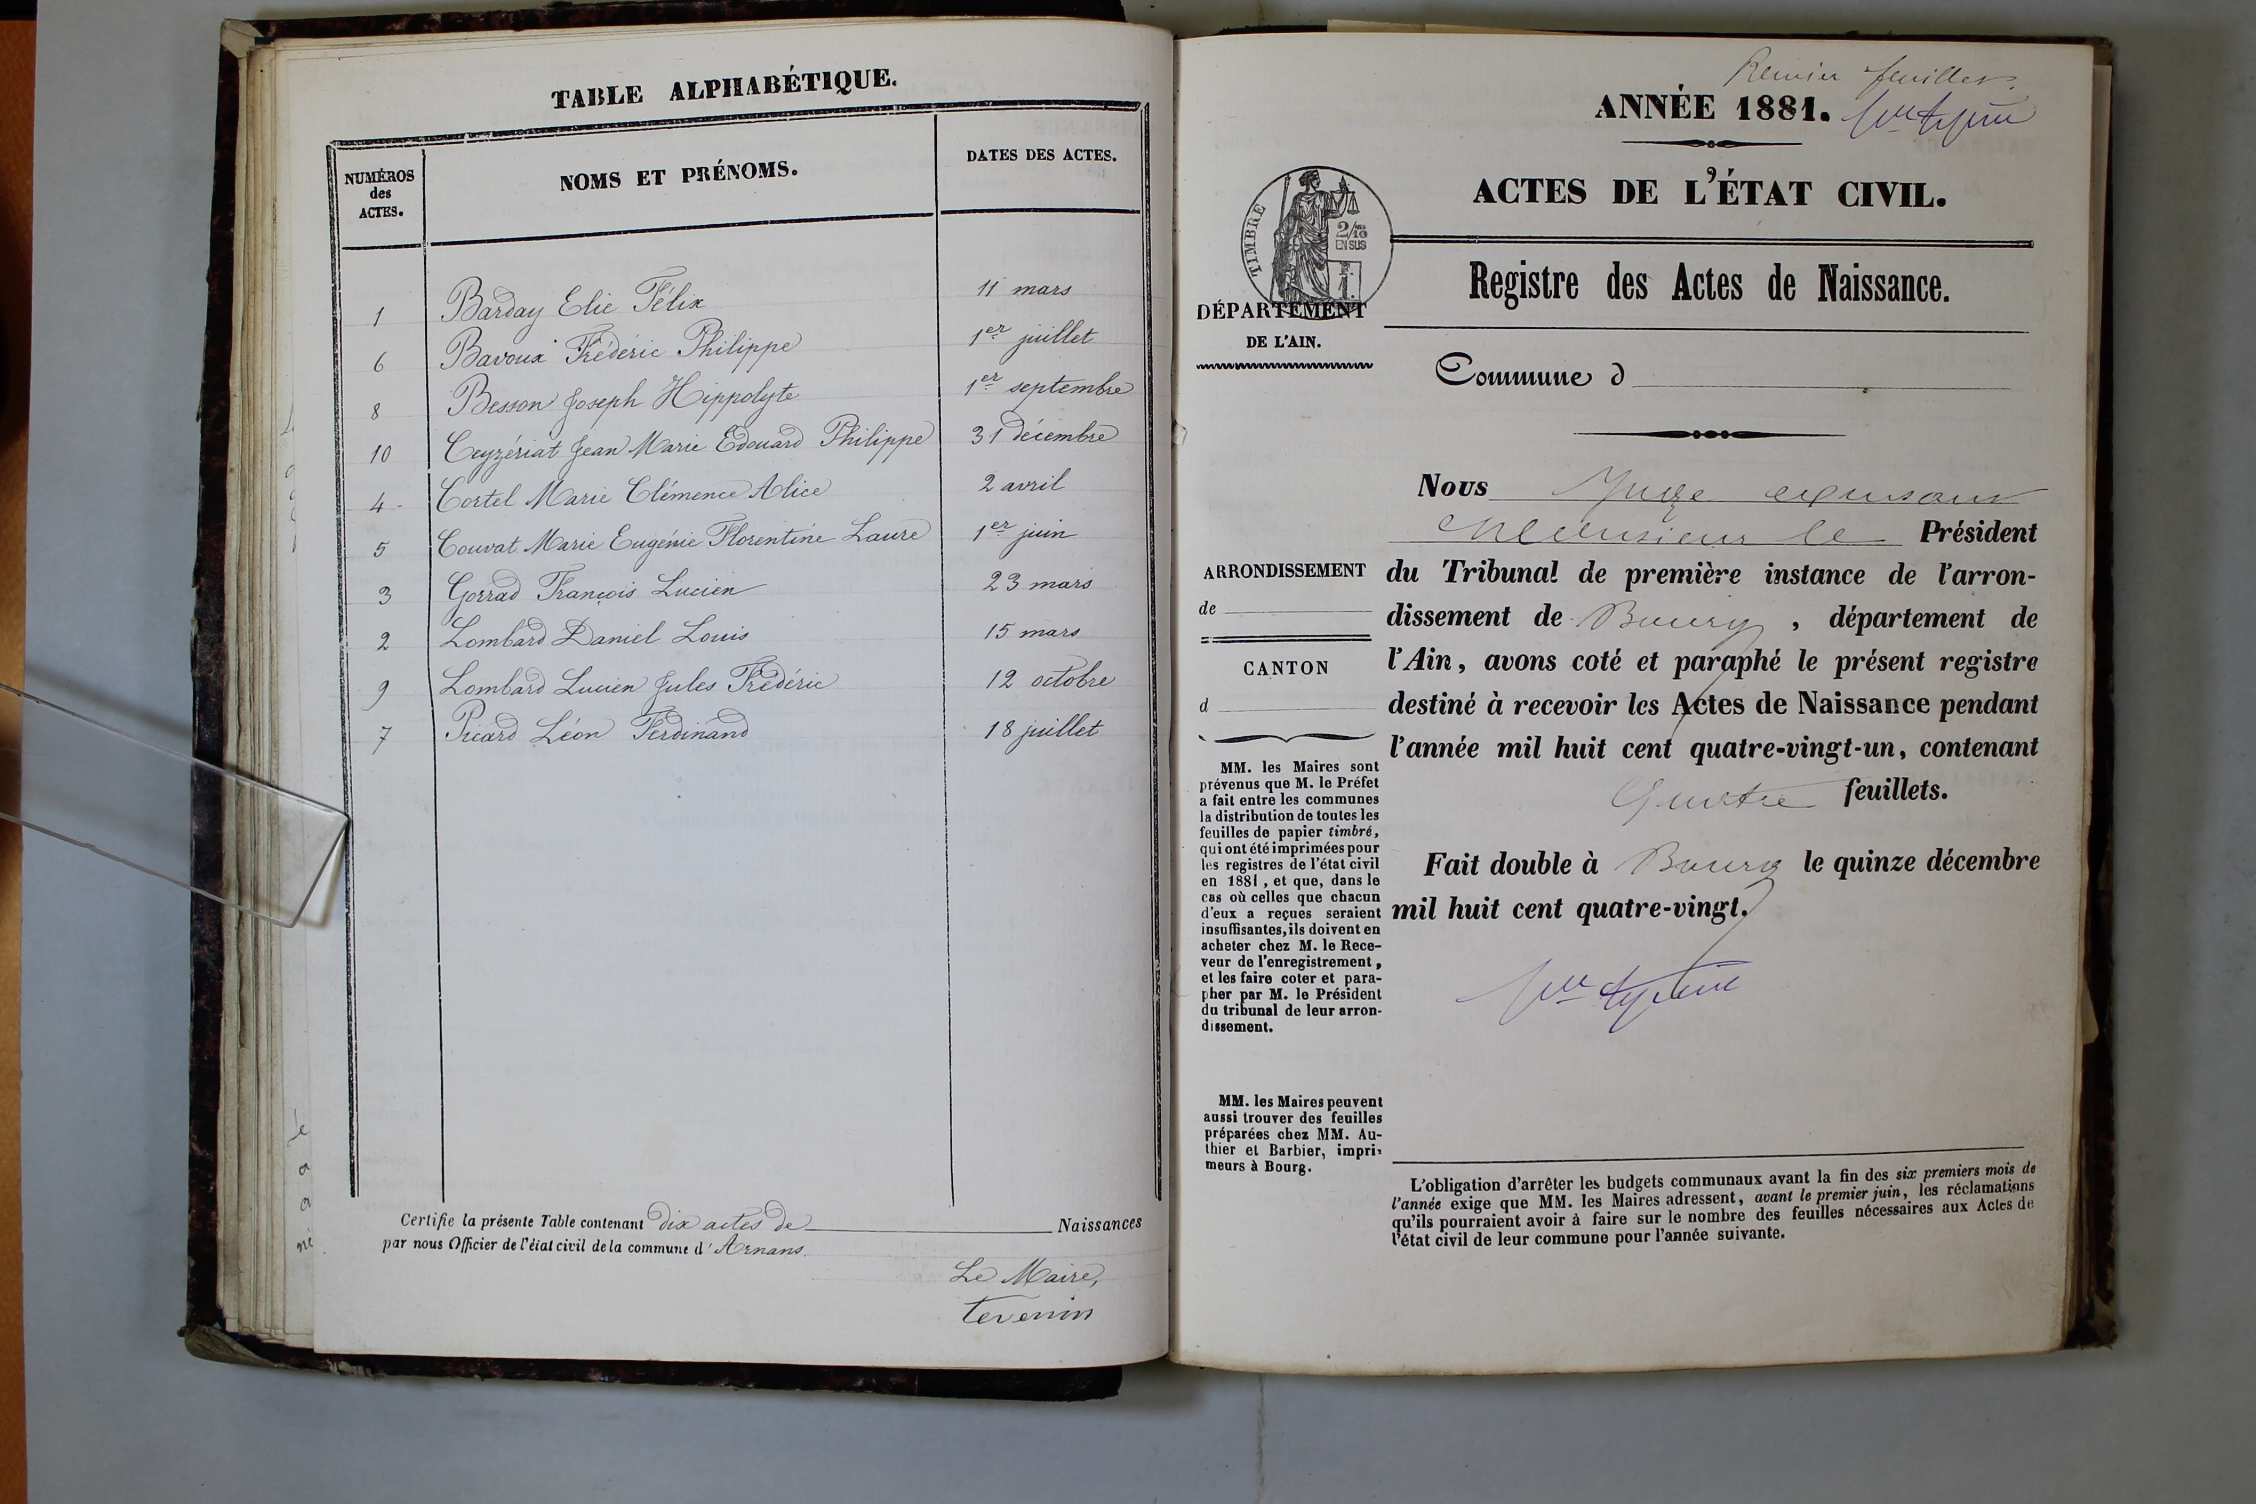 TABLE ALPHABÉTIQUE.
NUMÉROS
des
ACTES.
NOMS ET PRÉNOMS.
DATES DES ACTES.
1 Barday Elie Félix 11 mars
6 Bavoux Frédéric Philippe 1er juillet
8 Besson Joseph Hippolyte 1er septembre
10 Ceyzériat Jean Marie Edouard Philippe 31 décembre
4 Cortel Marie Clémence Alice 2 avril
5 Couvat Marie Eugénie Florentine Laure 1er juin
3 Gorrad François Lucien 23 mars
2 Lombard Daniel Louis 15 mars
9 Lombard Lucien Jules Frédéric 12 octobre
7 Picard Léon Ferdinand 18 juillet
Certifie la présente Table contenant dix actes de Naissances
par nous Officier de l'état civil de la commune d' Arnans
Le Maire,
Tevenin
feuillet
ANNÉE 1881.
ACTES DE L'ÉTAT CIVIL.
TIMBRE
2/10
EN SUS
DÉPARTEMENT
DE L'AIN.
Registre des Actes de Naissance.
Commune d
Nous Juge
Monsieur le Président
du Tribunal de première instance de l'arron-
dissement de Bourg, département de
l'Ain, avons coté et paraphé le présent registre
destiné à recevoir les Actes de Naissance pendant
l'année mil huit cent quatre-vingt-un, contenant
Quatre feuillets.
Fait double à Bourg le quinze décembre
mil huit cent quatre-vingt.
ARRONDISSEMENT
de
CANTON
d
MM. les Maires sont
prévenus que M. le Préfet
a fait entre les communes
la distribution de toutes les
feuilles de papier timbré,
qui ont été imprimées pour
les registres de l'état civil
en 1881, et que, dans le
cas où celles que chacun
d'eux a reçues seraient
insuffisantes, ils doivent en
acheter chez M. le Rece-
veur de l'enregistrement,
et les faire coter et para-
pher par M. le Président
du tribunal de leur arron-
dissement.
MM. les Maires peuvent
aussi trouver des feuilles
préparées chez MM. Au-
thier et Barbier, impri-
meurs à Bourg.
L'obligation d'arrêter les budgets communaux avant la fin des six premiers mois de
l'année exige que MM. les Maires adressent, avant le premier juin, les réclamations
qu'ils pourraient avoir à faire sur le nombre des feuilles nécessaires aux Actes de
l'état civil de leur commune pour l'année suivante.